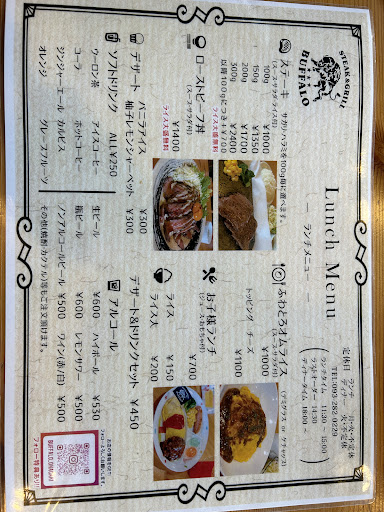 STEAK&GRILL
BUFFALO
Lunch Menu
ランチメニュー
定休日 ランチ 日・火・不定休
ディナー 火・不定休
TEL:093-282-0229
ランチタイム 11:30 ~ 15:00
ラストオーダー 14:30
ディナータイム 18:00 ~
ステーキ サガリ・ハラミを100g毎に選べます。
(スープ・サラダ・ライス付)
100g ¥1000
150g ¥1350
200g ¥1700
300g ¥2400
以降100gにつき+¥700
ライス大盛無料
ローストビーフ丼 ¥1400
(スープ・サラダ付)
ライス大盛無料
デザート バニラアイス ¥300
柚子レモンシャーベット ¥300
ソフトドリンク ALL¥250
ウーロン茶 アイスコーヒー
コーラ ホットコーヒー
ジンジャーエール カルピス
オレンジ グレープフルーツ
ふわとろオムライス ¥1000
(スープ・サラダ付) (デミグラス or ケチャップ)
トッピング チーズ ¥100
お子様ランチ ¥700
(ジュース・おもちゃ付)
ライス ¥150
ライス大 ¥200
デザート&ドリンクセット ¥450
アルコール
生ビール ¥600 ハイボール ¥530
瓶ビール ¥600 レモンサワー ¥500
ノンアルコールビール ¥500 ワイン(赤/白) ¥500
その他焼酎・カクテル等もご注文頂けます。
BUFFALO.ONGAH
フォロー特典あり!!